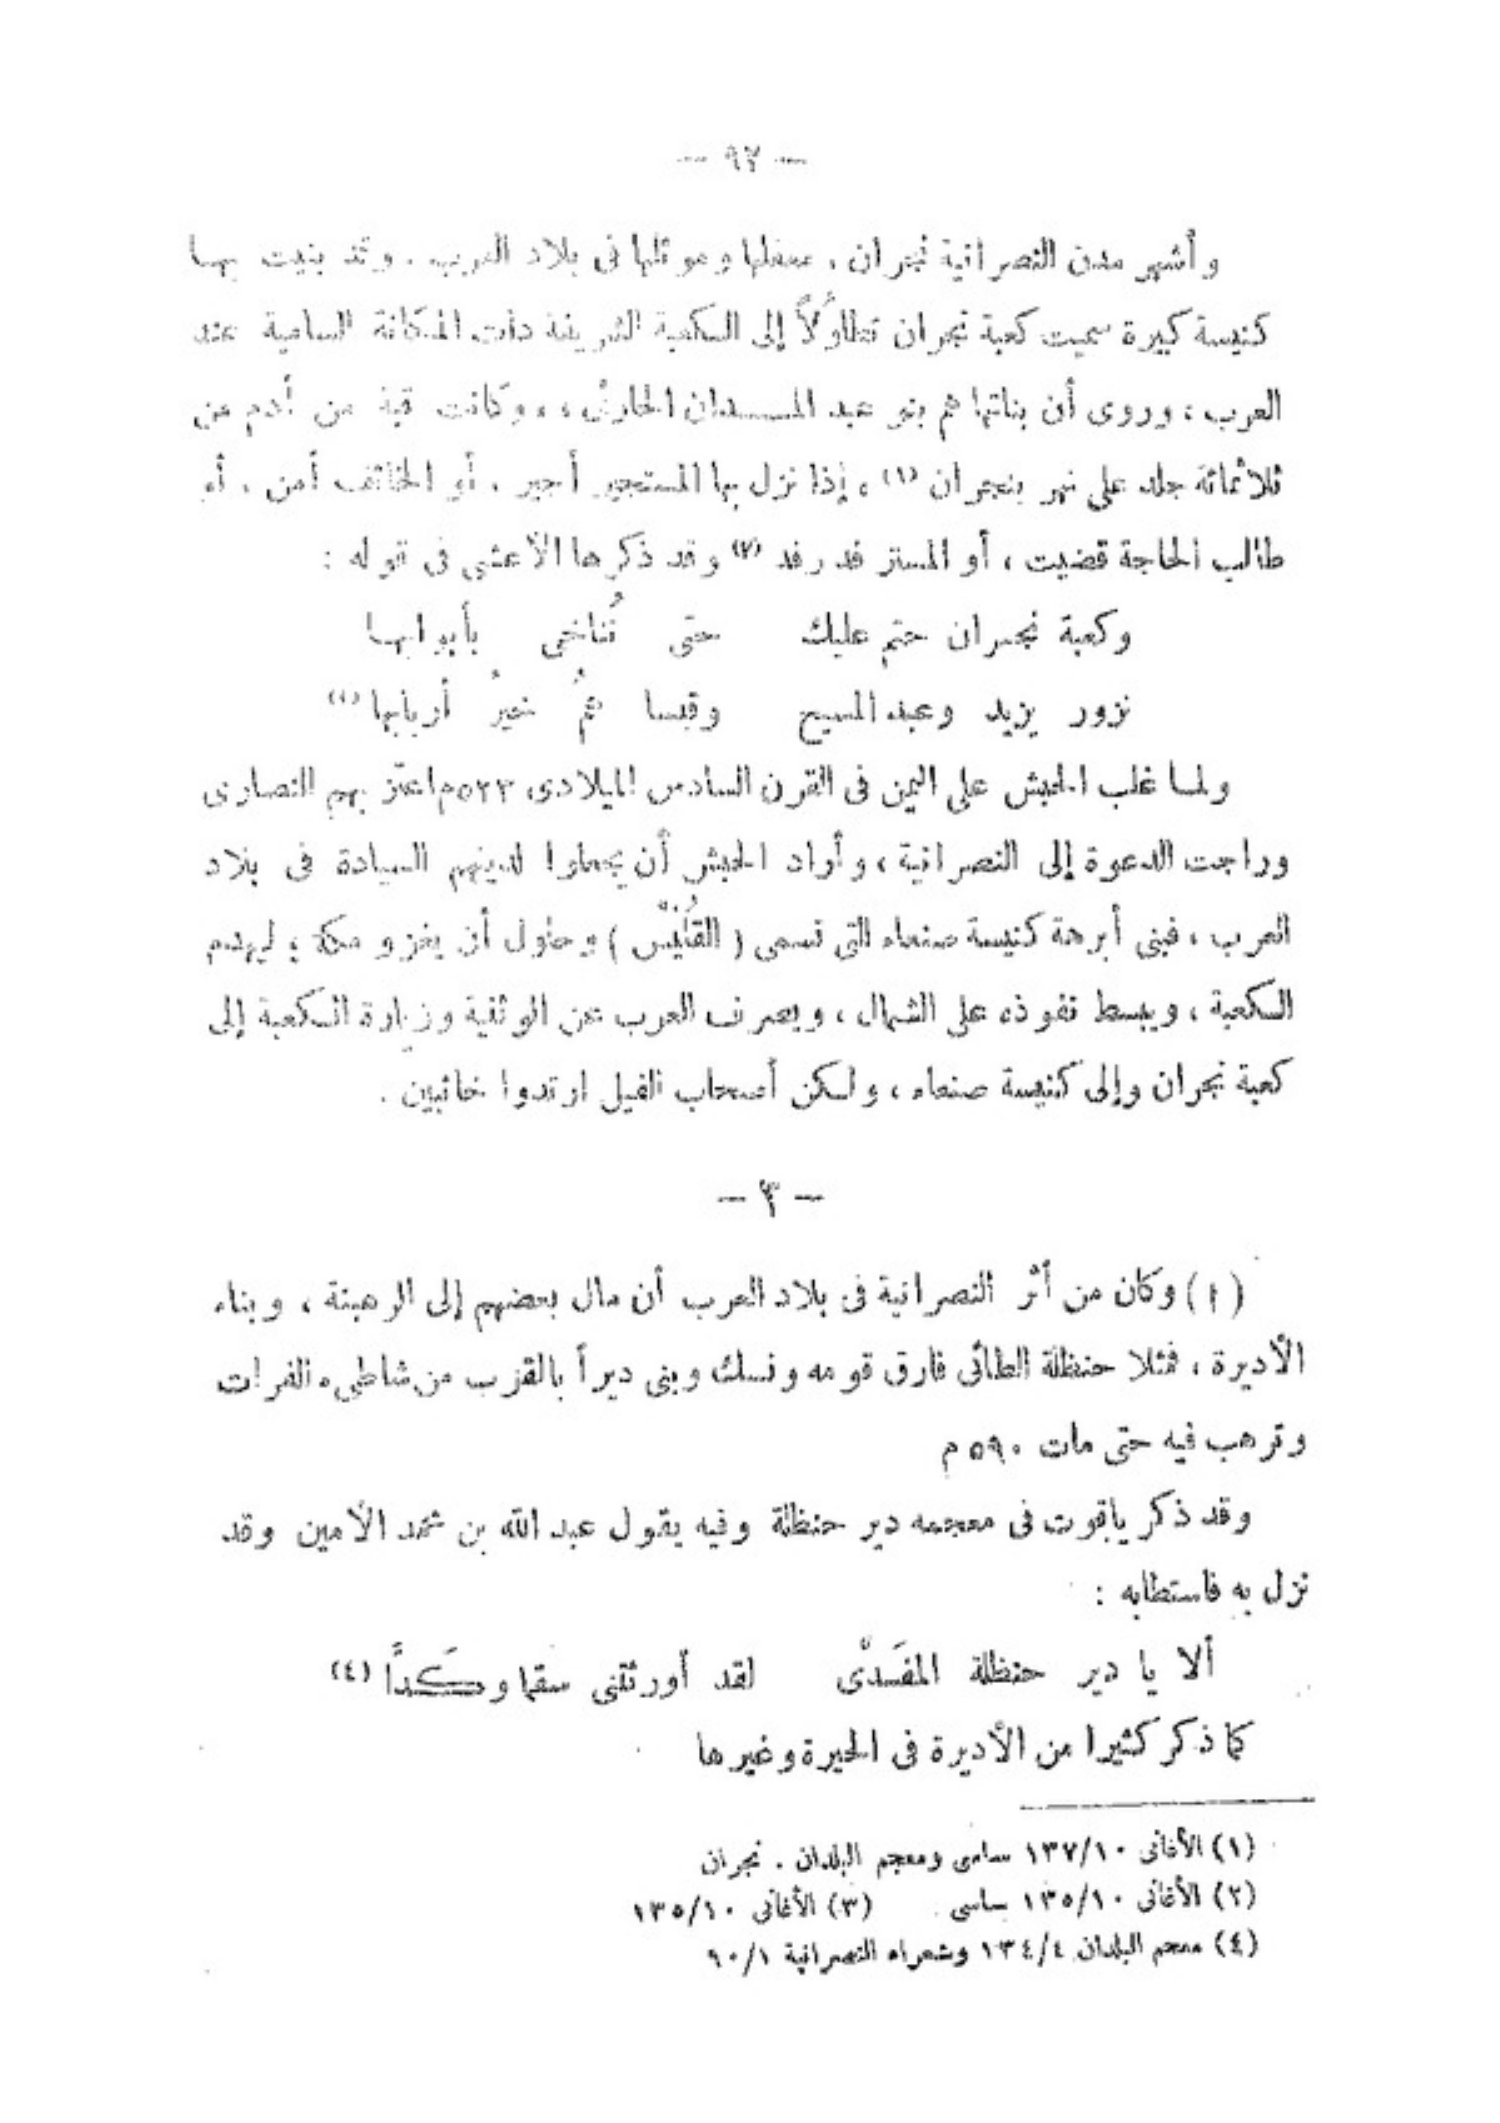 — ٩٢ —
وأشهر مدن النصرانية نجران ، معقلها وموئلها فى بلاد العرب . وقد بنيت بها
كنيسة كبيرة سميت كعبة نجران تطاوُلاً إلى الكعبة الشريفة ذات المكانة السامية عند
العرب ، وروى أن بناتها هم بنو عبد المدان الحارثى ، وكانت قبة من أدم من
ثلاثمائة جلد على نهر بنجران (١) ، إذا نزل بها المستجير أجير . أو الخائف أمن . أو
طالب الحاجة قضيت ، أو المسترفد رفد (٢) وقد ذكرها الأعشى فى قوله :
وكعبة نجران حتم عليك حتى تُناخى بأبوابها
نزور يزيد وعبد المسيح وقيسا همُ خيرُ أربابها
ولما غلب الحبش على اليمن فى القرن السادس الميلادى ٥٢٣م اعتز بهم النصارى
وراجت الدعوة إلى النصرانية ، وأراد الحبش أن يجعلوا لدينهم السيادة فى بلاد
العرب ، فبنى أبرهة كنيسة صنعاء التى تسمى ( القُلَّيْس ) وحاول أن يغزو مكة ؛ ليهدم
الكعبة ، ويبسط نفوذه على الشمال ، ويصرف العرب عن الوثنية وزيارة الكعبة إلى
كعبة نجران وإلى كنيسة صنعاء ، ولكن أصحاب الفيل ارتدوا خائبين .
— ٣ —
( ١ ) وكان من أثر النصرانية فى بلاد العرب أن مال بعضهم إلى الرهبنة ، وبناء
الأديرة ، فمثلا حنظلة الطائى فارق قومه ونسك وبنى ديراً بالقرب من شاطىء الفرات
وترهب فيه حتى مات ٥٩٠ م
وقد ذكر ياقوت فى معجمه دير حنظلة وفيه يقول عبد الله بن محمد الأمين وقد
نزل به فاستطابه :
ألا يا دير حنظلة المفَدَّى لقد أورثتنى سقما وكَدًّا (٤)
كما ذكر كثيرا من الأديرة فى الحيرة وغيرها
(١) الأغانى ١٣٧/١٠ ساسى ومعجم البلدان . نجران
(٢) الأغانى ١٣٥/١٠ ساسى . (٣) الأغانى ١٣٥/١٠
(٤) معجم البلدان ١٣٤/٤ وشعراء النصرانية ٩٠/١